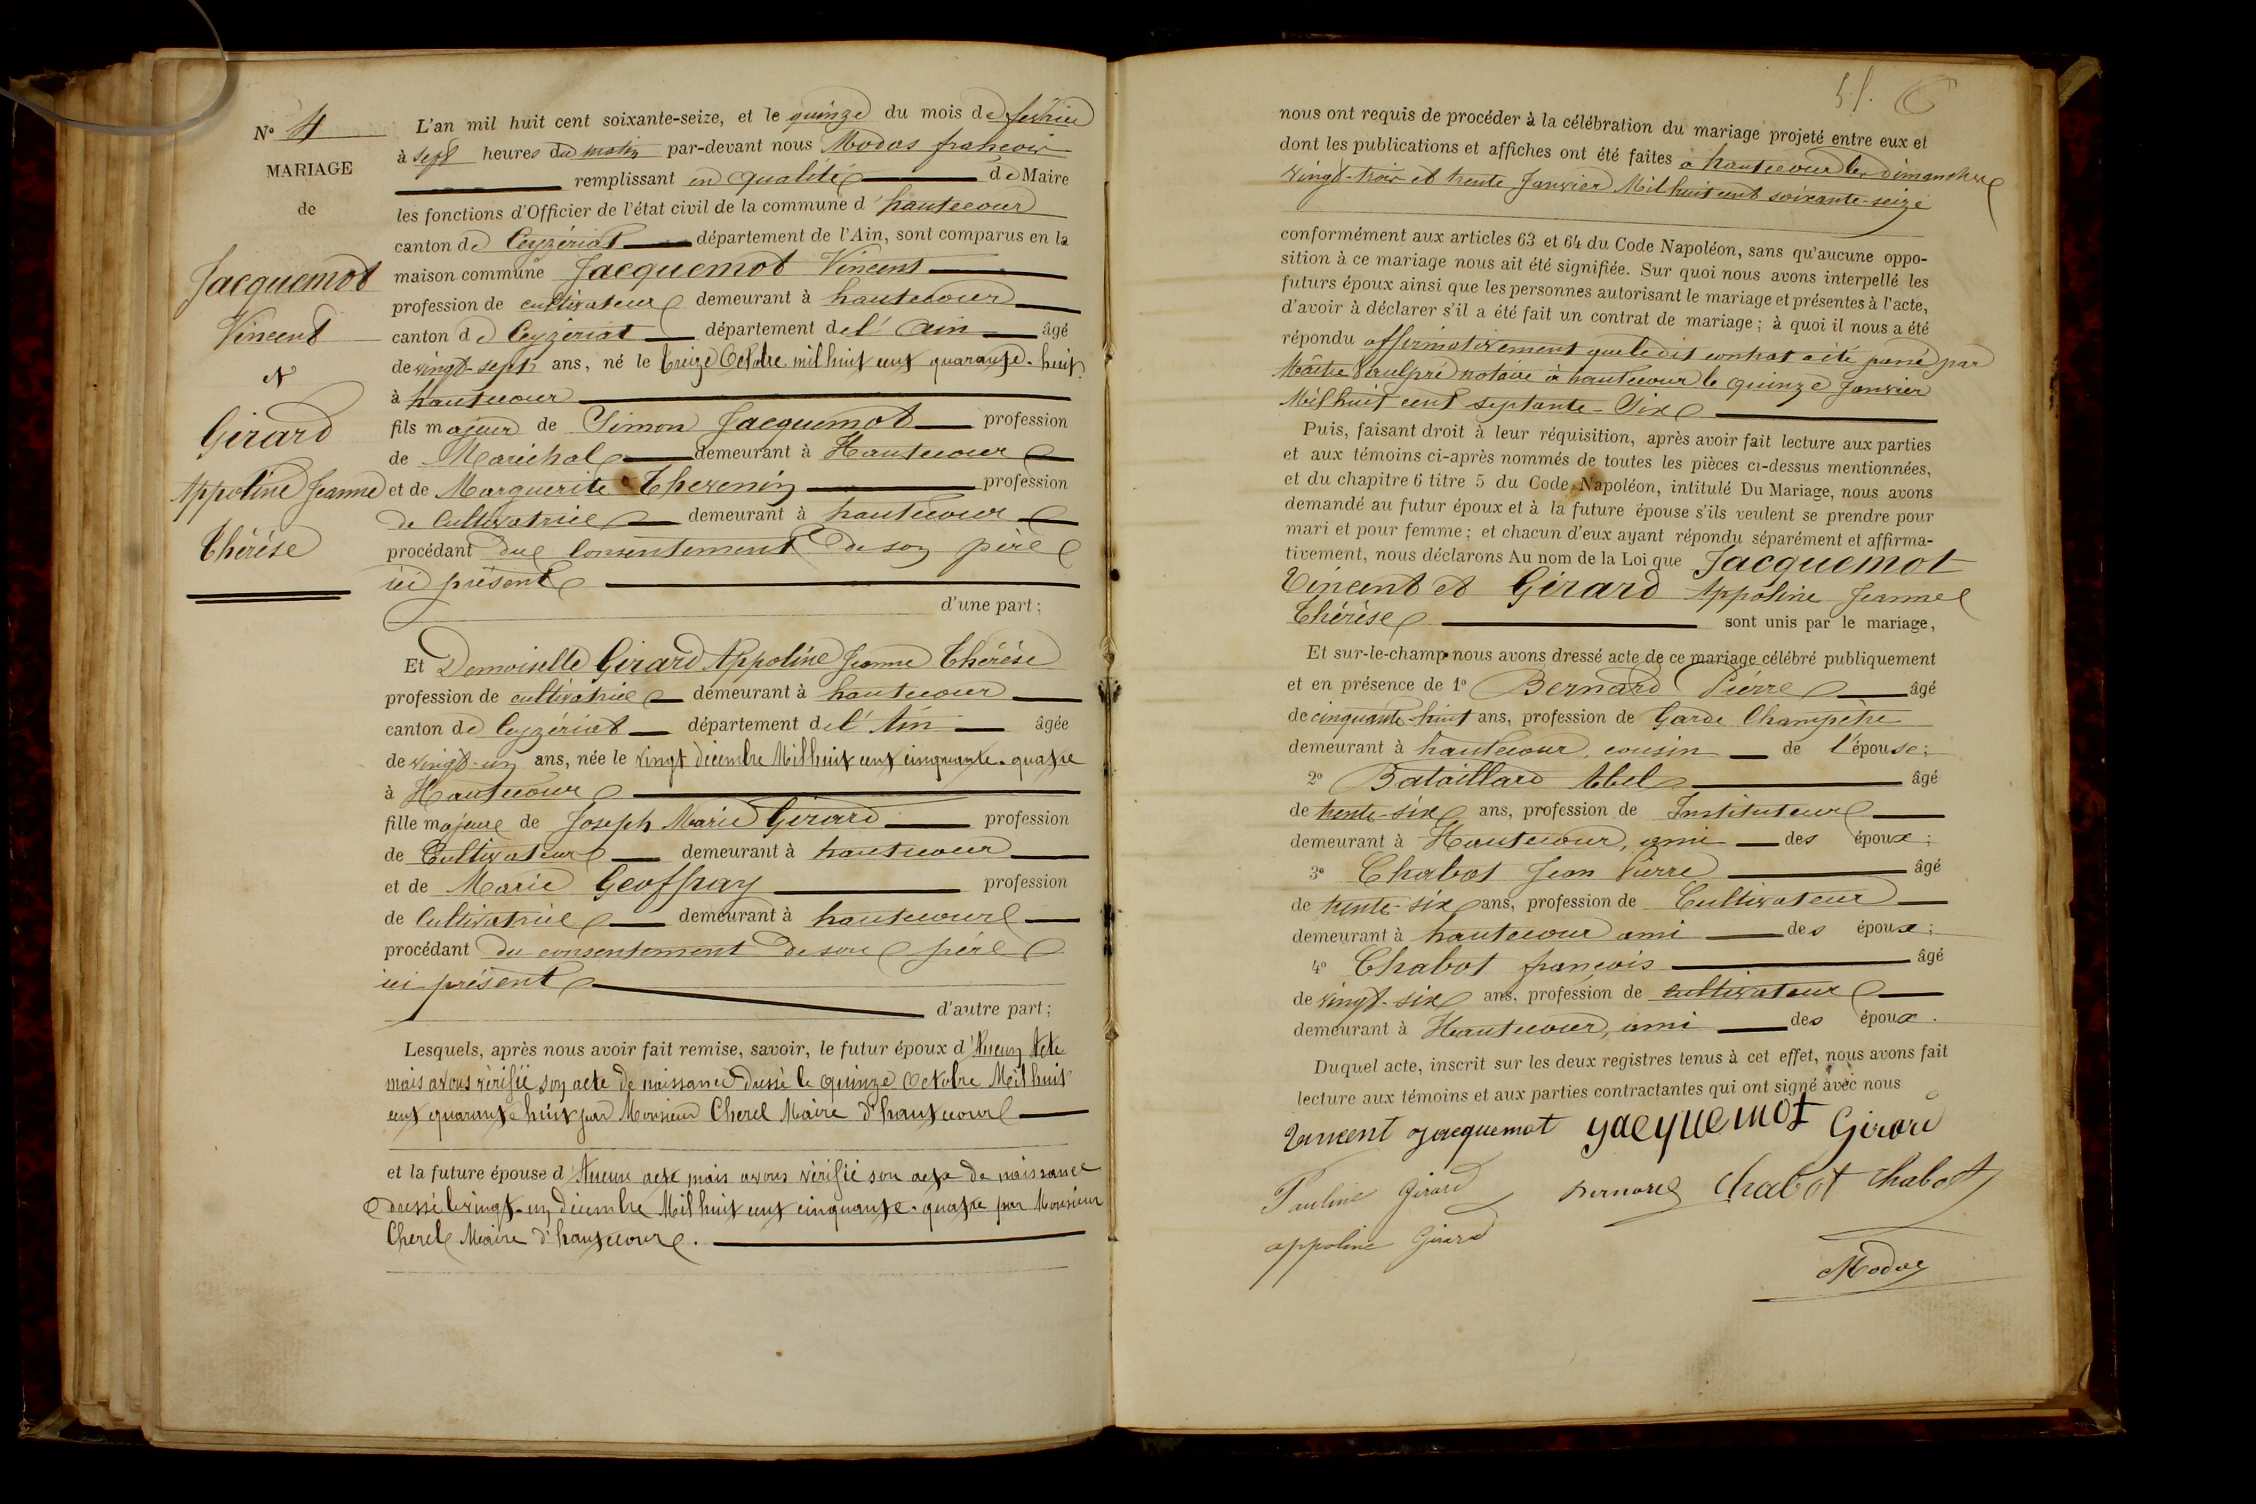 N° 4
MARIAGE
de
Jacquemot
Vincent
&
Girard
Appoline Jeanne
Thérèse
L'an mil huit cent soixante-seize, et le quinze du mois de février
à sept heures du matin par-devant nous Modas françois
remplissant en qualité de Maire
les fonctions d'Officier de l'état civil de la commune d'hautecour
canton de Ceyzériat département de l'Ain, sont comparus en la
maison commune Jacquemot Vincent
profession de cultivateur demeurant à hautecour
canton de Ceyzériat département de l'Ain âgé
de vingt-sept ans, né le treize Octobre mil huit cent quarante-huit
à hautecour
fils majeur de Simon Jacquemot profession
de Maréchal demeurant à Hautecour
et de Marguerite Thevenin profession
de Cultivatrice demeurant à hautecour
procédant du Consentement de son père
ici présent
d'une part;
Et Demoiselle Girard Appoline Jeanne Thérèse
profession de cultivatrice demeurant à hautecour
canton de Ceyzériat département de l'Ain âgée
de vingt-un ans, née le vingt décembre Mil huit cent cinquante-quatre
à Hautecour
fille majeure de Joseph Marie Girard profession
de Cultivateur demeurant à hautecour
et de Marie Geoffray profession
de Cultivatrice demeurant à hautecour
procédant du consentement de son père
ici présent
d'autre part;
Lesquels, après nous avoir fait remise, savoir, le futur époux d'Aucun Acte
mais avons vérifié son acte de naissance dressé le quinze Octobre Mil huit
cent quarante huit par Monsieur Cherel Maire d'hautecour
et la future épouse d'Aucun acte mais avons vérifié son acte de naissance
dressé le vingt-un décembre Mil huit cent cinquante-quatre par Monsieur
Cherel Maire d'hautecour.
nous ont requis de procéder à la célébration du mariage projeté entre eux et
dont les publications et affiches ont été faites à hautecour les dimanches
vingt-trois et trente Janvier Mil huit cent soixante-seize
conformément aux articles 63 et 64 du Code Napoléon, sans qu'aucune oppo-
sition à ce mariage nous ait été signifiée. Sur quoi nous avons interpellé les
futurs époux ainsi que les personnes autorisant le mariage et présentes à l'acte,
d'avoir à déclarer s'il a été fait un contrat de mariage; à quoi il nous a été
répondu affirmativement que le dit contrat a été passé par
Maître notaire à hautecour le quinze Janvier
Mil huit cent septante-Six
Puis, faisant droit à leur réquisition, après avoir fait lecture aux parties
et aux témoins ci-après nommés de toutes les pièces ci-dessus mentionnées,
et du chapitre 6 titre 5 du Code Napoléon, intitulé Du Mariage, nous avons
demandé au futur époux et à la future épouse s'ils veulent se prendre pour
mari et pour femme; et chacun d'eux ayant répondu séparément et affirma-
tivement, nous déclarons Au nom de la Loi que Jacquemot
Vincent et Girard Appoline Jeanne
Thérèse sont unis par le mariage,
Et sur-le-champ nous avons dressé acte de ce mariage célébré publiquement
et en présence de 1° Bernard Pierre âgé
de cinquante-huit ans, profession de Garde Champêtre
demeurant à hautecour, cousin de l'épouse;
2° Bataillard Abel âgé
de trente-six ans, profession de Instituteur
demeurant à Hautecour, ami des époux;
3° Chabot Jean Pierre âgé
de trente-six ans, profession de Cultivateur
demeurant à hautecour ami des époux;
4° Chabot françois âgé
de vingt-six ans, profession de cultivateur
demeurant à Hautecour, ami des époux.
Duquel acte, inscrit sur les deux registres tenus à cet effet, nous avons fait
lecture aux témoins et aux parties contractantes qui ont signé avec nous
Vincent Jacquemot Jacquemot Girard
Pauline Girard Bernard Chabot Chabot
appoline Girard
Modas